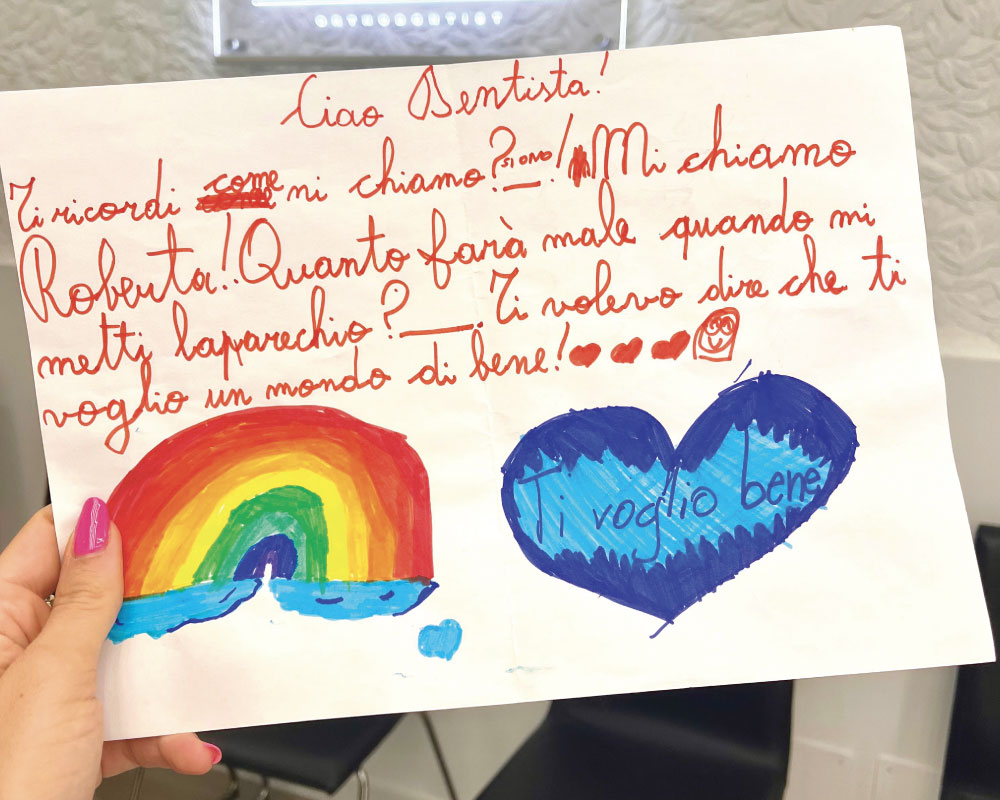 ORTHODONTIST
Ciao Dentista!
Ti ricordi come mi chiamo? SI O NO ! Mi chiamo
Roberta! Quanto farà male quando mi
metti laparechio? ___. Ti volevo dire che ti
voglio un mondo di bene!
Ti voglio bene